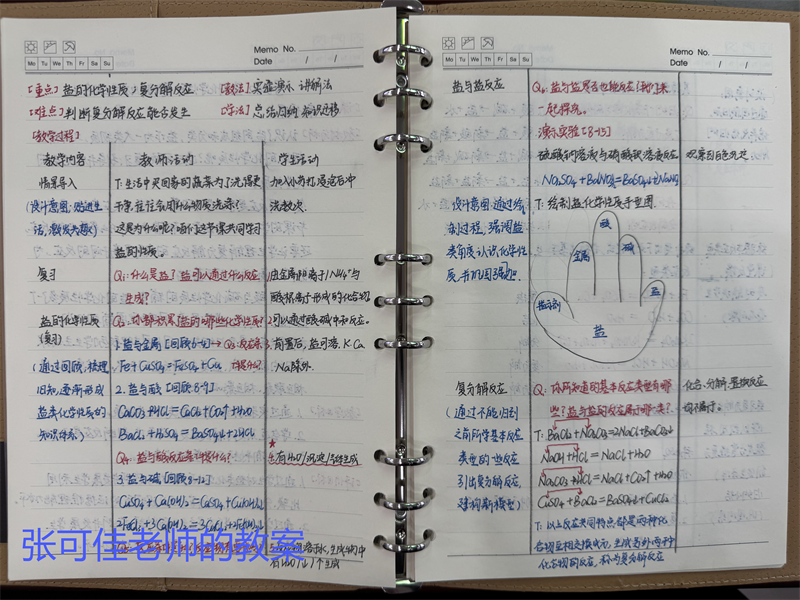 Memo No.
Mo Tu We Th Fr Sa Su
Date / /
[重点] 盐的化学性质;复分解反应 [教法] 实验演示 讲解法
[难点] 判断复分解反应能否发生 [学法] 总结归纳 知识迁移
[教学过程]
教学内容 教师活动 学生活动
情景导入 T:生活中买回家的蔬菜为了洗得更 加入小苏打浸泡后冲
(设计意图:贴近生 干净,往往会用什么物质洗涤? 洗数次.
活,激发兴趣) 这是为什么呢?咱们这节课共同学习
盐的性质.
复习 Q1:什么是盐?盐可以通过什么反应 1.由金属阳离子/NH4+与
生成? 酸根离子形成的化合物
盐的化学性质 2.可以通过酸碱中和反应.
(复习) 1.盐与金属 [回顾6-4] 3.前置后,盐可溶. K Ca
(通过回顾,梳理 Fe+CuSO4=FeSO4+Cu Na除外.
旧知,逐渐形成 2.盐与酸 [回顾8-9]
盐类化学性质的 CaCO3+2HCl=CaCl2+CO2↑+H2O
知识体系) BaCl2+H2SO4=BaSO4↓+2HCl
Q4:盐与酸反应条件是什么? 4.有H2O/沉淀/气体生成
3.盐与碱 [回顾8-12]
CuSO4+Ca(OH)2=CaSO4+Cu(OH)2↓
2FeCl3+3Ca(OH)2=3CaCl2+2Fe(OH)3↓
张可佳老师的教案
Memo No.
Mo Tu We Th Fr Sa Su
Date / /
盐与盐反应 Q6:盐与盐是否也能反应
[演示实验 8-13]
硫酸钠溶液与硝酸钡溶液反应 观察到白色沉淀
Na2SO4+Ba(NO3)2=BaSO4↓+2NaNO3
设计意图:通过绘 T:绘制盐化学性质手型图.
制过程,强调盐
类角度认识化学性
质,并巩固强化.
酸
金属
碱
指示剂
盐
盐
复分解反应 Q:你所知道的基本反应类型有哪 化合.分解.置换反应
(通过不能归到 些?盐与盐的反应属于哪一类? 均不属于.
之前所学基本反应 T:BaCl2+Na2CO3=2NaCl+BaCO3↓
类型的一些反应 NaOH+HCl=NaCl+H2O
引出复分解反应, Na2CO3+HCl=NaCl+CO2↑+H2O
建构新模型) CuSO4+BaCl2=BaSO4↓+CuCl2
T:以上反应共同特点都是两种化
合物互相交换成分,生成另外两种
化合物的反应,称为复分解反应